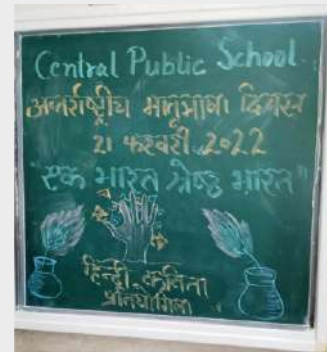 Central Public School
अन्तर्राष्ट्रीय मातृभाषा दिवस
21 फरवरी 2022
"एक भारत श्रेष्ठ भारत"
हिन्दी-कविता
प्रतियोगिता